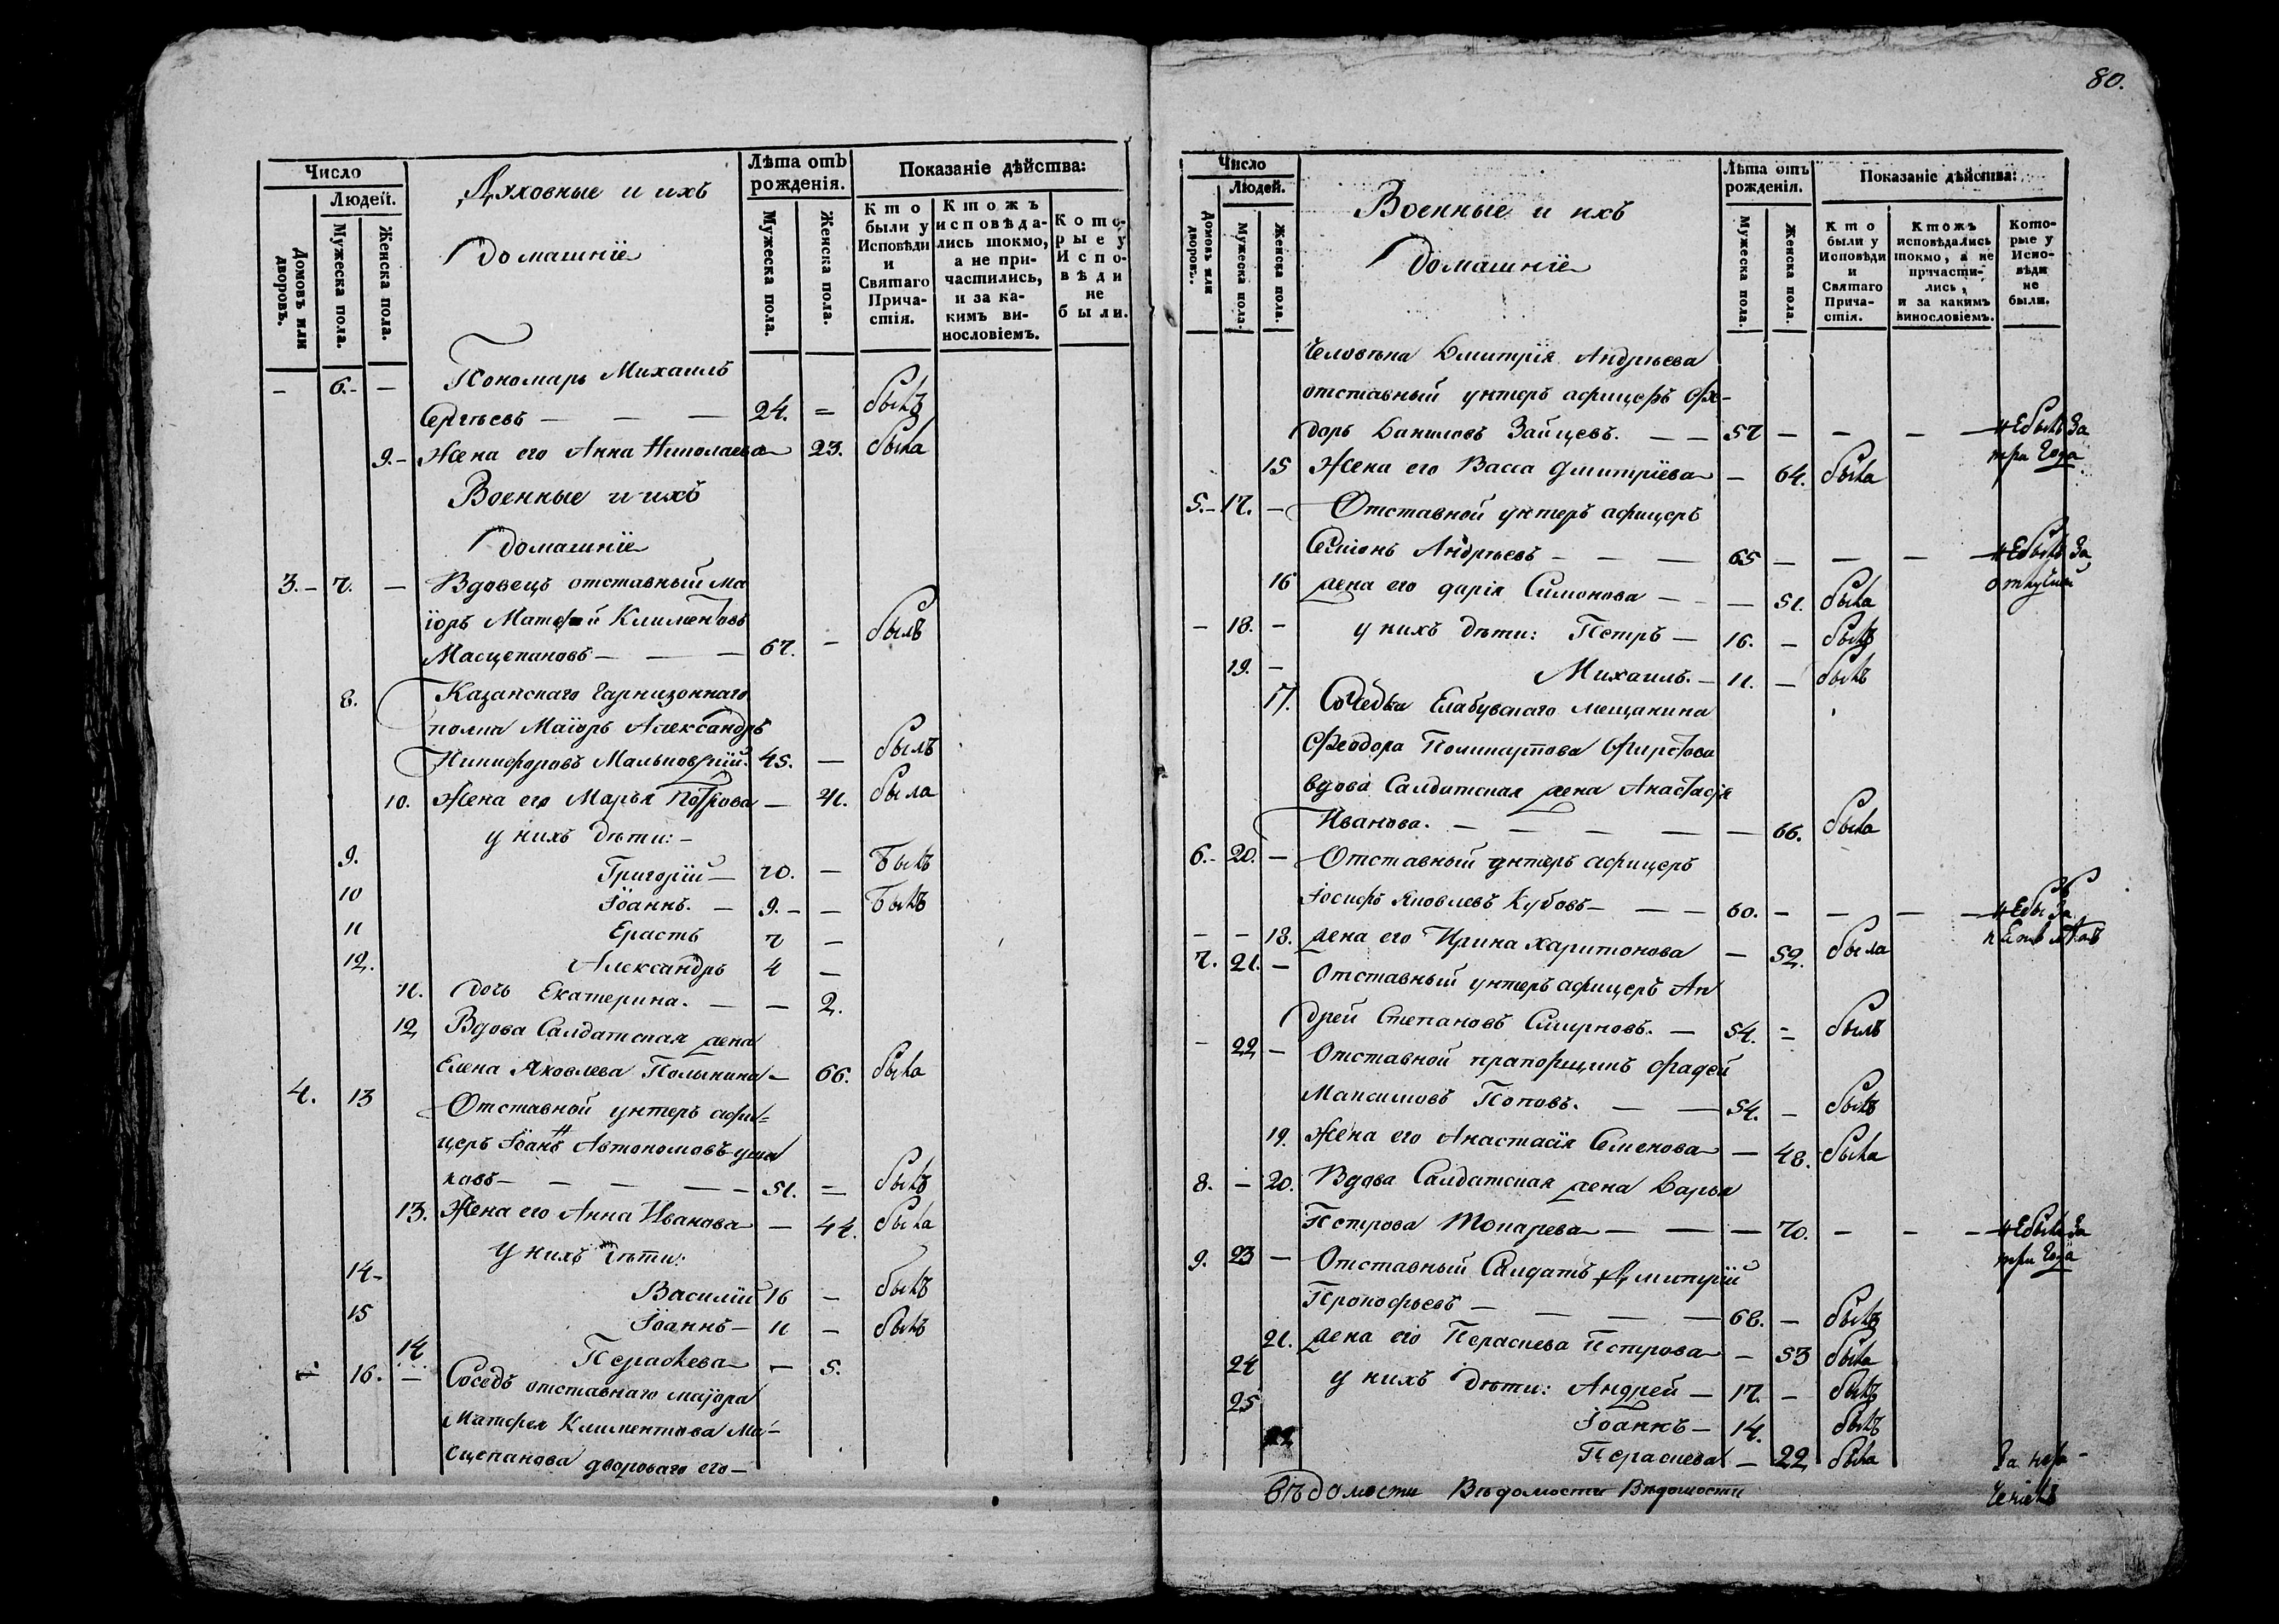 Число
Людей.
Домовъ или дворовъ.
Мужеска пола.
Женска пола.
Духовные и ихъ
домашніе
Лѣта отъ рожденія.
Мужеска пола.
Женска пола.
Показаніе дѣйства:
Кто были у Исповѣди и Святаго Причастія.
Ктожъ исповѣдались токмо, а не причастились, и за какимъ винословіемъ.
Которые у Исповѣди не были.
- 6. - Пономарь Михаилъ
Сергѣевъ — 24. = былъ
9. - Жена его Анна Николаева 23. была
Военные и ихъ
домашніе
3. - 7. - Вдовецъ отставный Ма
іоръ Матфей Климентовъ
Масцепановъ — 67. - былъ
8. Казанскаго Гарнизоннаго
полка Маіоръ Александръ
Никифоровъ 45. — былъ
10. Жена его Марья Петрова — 41. была
у нихъ дѣти: -
9. Григорій — 10. — Былъ
10 Іоаннъ. — 9. - — Былъ
11 Ерастъ 7 —
12. Александръ 4 —
11. дочь Екатерина. — — 2.
12 Вдова Салдатская жена
Елена Яковлева Полынина — 66. была
4. 13 Отставной унтеръ афи=
церъ Іоанъ Автономовъ
ковъ — 51. = былъ
13. Жена его Анна Иванова — 44. была
У нихъ дѣти:
14 - Василій 16 — былъ
15 Іоаннъ — 11 — былъ
14 Параскева — — 5.
16. — Соседъ отставнаго маіора
Матфея Климентова Ма-
сцепанова двороваго его —
80.
Число
Людей.
Домовъ или дворовъ.
Мужеска пола.
Женска пола.
Военные и ихъ
домашніе
Лѣта отъ рожденія.
Мужеска пола.
Женска пола.
Показаніе дѣйства:
Кто были у Исповѣди и Святаго Причастія.
Ктожъ исповѣдались токмо, а не причастились, и за какимъ винословіемъ.
Которые у Исповѣди не были.
Человѣка Дмитрія Андрѣева
отставный унтеръ афицеръ Фе-
доръ Даниловъ Зайцевъ. — — 57 — — — не былъ За
три Года
15 Жена его Васса Дмитріева — 64. была
5. - 17. — Отставной унтеръ афицеръ
Семіонъ Андрѣевъ — 65 — — — не былъ За
отлучкой
16 жена его дарія Симонова — — 51. была
- 18. - у нихъ дѣти: Петръ — 16. - былъ
19. - Михаилъ. — 11. — былъ
17. Соседка Елабужскаго мещанина
Феодора
вдова Салдатская жена Анастасія
Иванова. — 66. была
6. - 20. — Отставный унтеръ афицеръ
Іосифъ Яковлевъ Кубовъ — 60. — — — не бы За
лѣтъ
- - 18. жена его Ирина харитонова — 52. была
7. 21. — Отставный унтеръ афицеръ Ан
дрей Степановъ Смирновъ. — 54. = былъ
- 22 — Отставной прапорщикъ Фадей
Максимовъ Поповъ. — 54. — былъ
19. Жена его Анастасія Семенова — 48. была
8. — 20. Вдова Салдатская жена Дарья
Петрова Токарева — 70. - - - не была За
три Года
9. 23 — Отставный Салдатъ Дмитрій
Прокофьевъ — 68. — былъ
21. жена его Параскева Петрова — 53 была
24 у нихъ дѣти: Андрей — 17. — былъ
25 Іоаннъ — 14. былъ
22 Параскева — 22 была
Вѣдомости Вѣдомости Вѣдомости